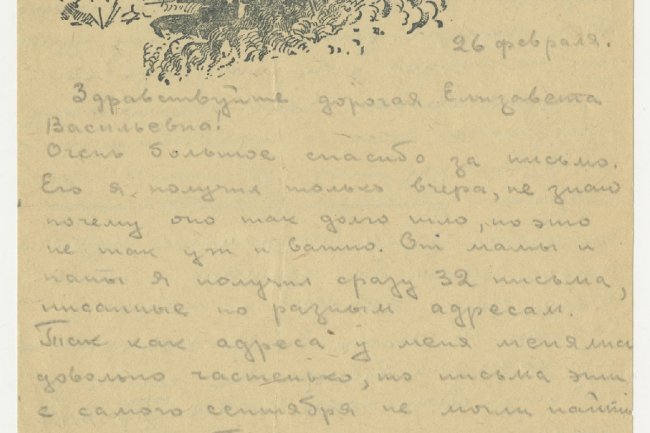 26 февраля.
Здравствуйте дорогая Елизавета
Васильевна!
Очень большое спасибо за письмо.
Его я получил только вчера, не знаю
почему оно так долго шло, но это
не так уж и важно. От мамы и
папы я получил сразу 32 письма,
писанные по разным адресам.
Так как адреса у меня менялись
довольно частенько, то письма эти
с самого сентября не могли найти